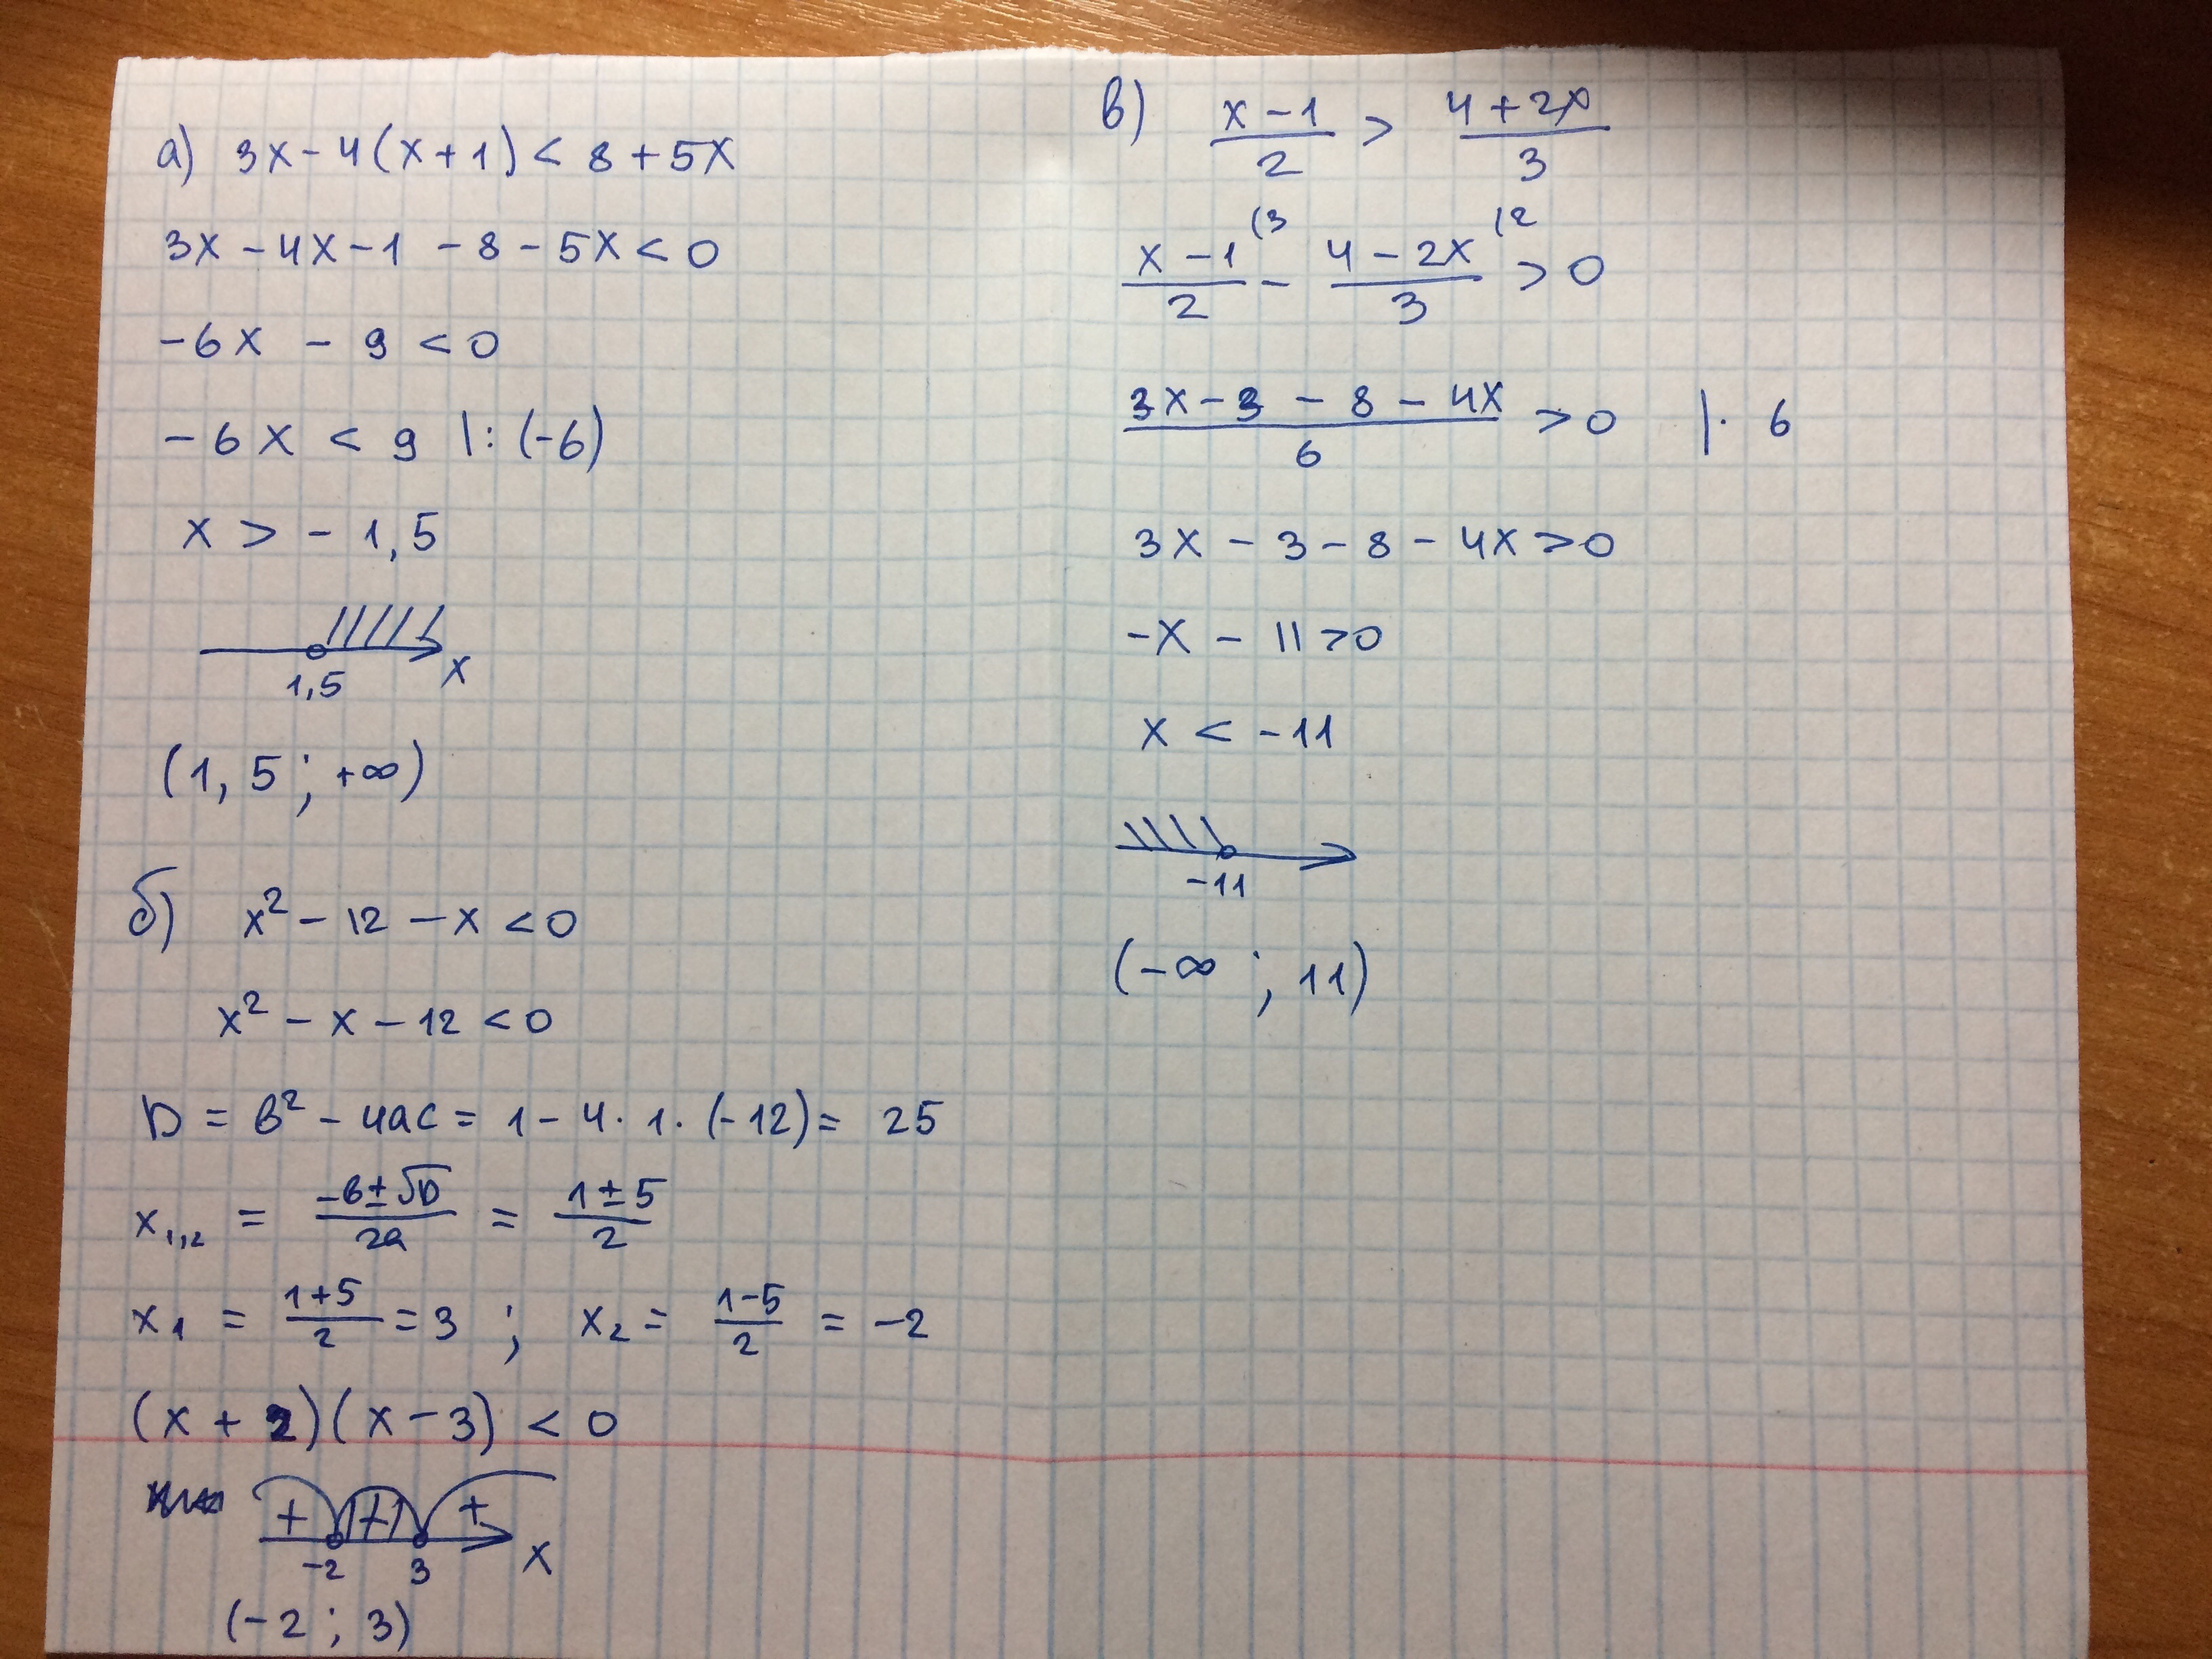 а) 3x - 4(x + 1) < 8 + 5x
3x - 4x - 1 - 8 - 5x < 0
-6x - 9 < 0
-6x < 9 |: (-6)
x > - 1,5
1,5 x
(1,5 ; +∞)
б) x² - 12 - x < 0
x² - x - 12 < 0
D = b² - 4ac = 1 - 4 · 1 · (-12) = 25
x₁,₂ = (-b ± √D)/2a = (1 ± 5)/2
x₁ = (1+5)/2 = 3 ; x₂ = (1-5)/2 = -2
(x + 2)(x - 3) < 0
+ - +
-2 3 x
(-2 ; 3)
в) (x - 1)/2 > (4 + 2x)/3
(x - 1)/2 (3 - (4 - 2x)/3 (2 > 0
(3x - 3 - 8 - 4x)/6 > 0 | · 6
3x - 3 - 8 - 4x > 0
-x - 11 > 0
x < -11
-11
(-∞ ; 11)